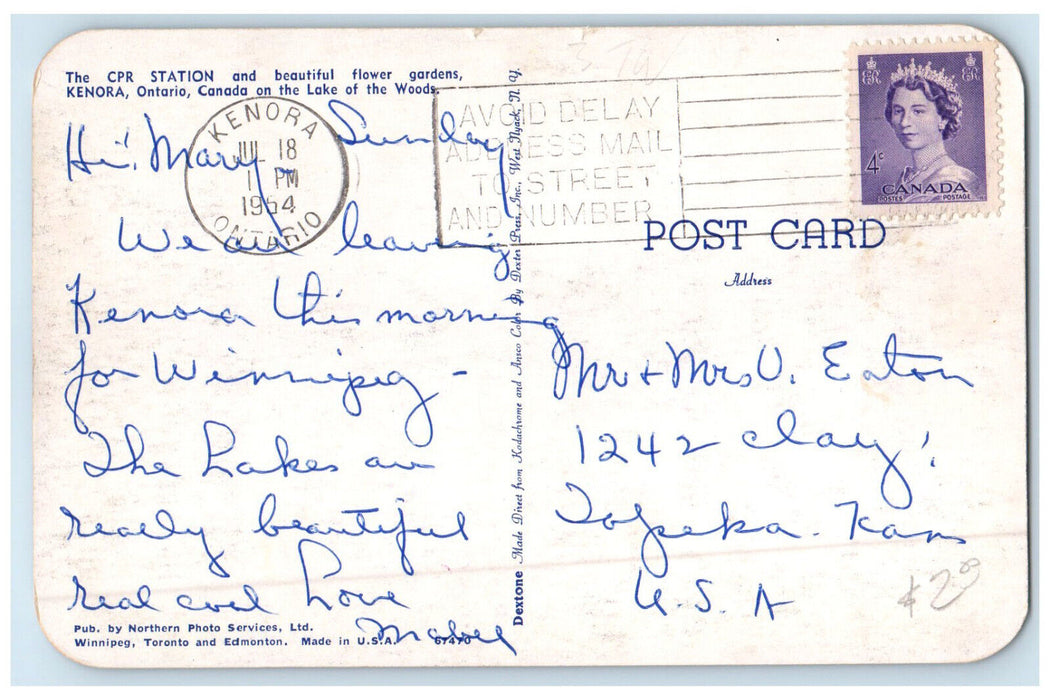 The CPR STATION and beautiful flower gardens,
KENORA, Ontario, Canada on the Lake of the Woods.
Hi! Mary - Sunday
We are leaving
Kenora this morning
for Winnipeg -
The Lakes are
really beautiful
real cool Love
Mabel
Pub. by Northern Photo Services, Ltd.
Winnipeg, Toronto and Edmonton. Made in U.S.A. 67470
KENORA
JUL 18
1 PM
1954
ONTARIO
AVOID DELAY
ADDRESS MAIL
TO STREET
AND NUMBER
Dextone Made Direct from Kodachrome and Ansco Color By Dexter Press, Inc., West Nyack, N. Y.
ER ER
4c
CANADA
POSTES POSTAGE
POST CARD
Address
Mr + Mrs V. Eaton
1242 Clay
Topeka. Kans
U.S.A
$2.00